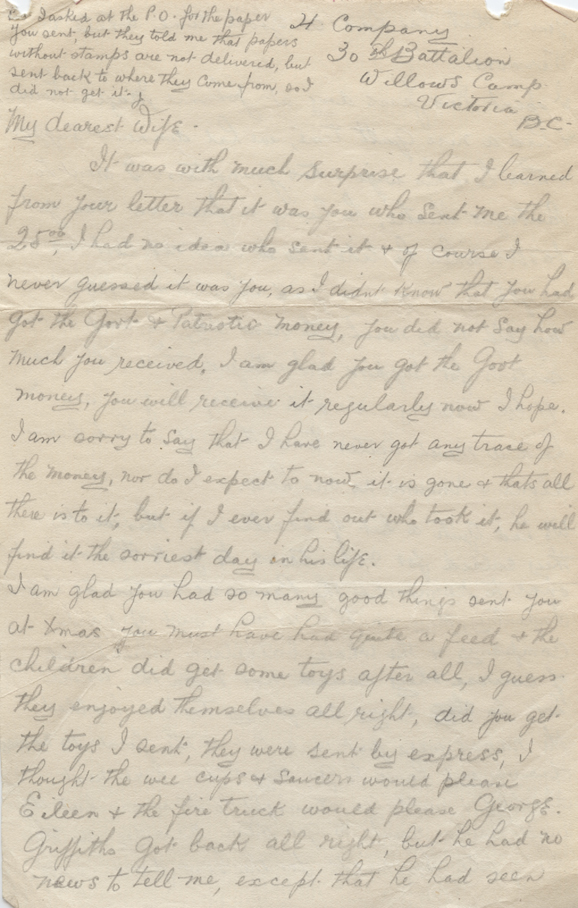 I asked at the P.O. for the paper
you sent, but they told me that papers
without stamps are not delivered, but
sent back to where they come from, so I
did not get it.
H Company
30th Battalion
Willows Camp
Victoria
B.C.
My dearest Wife -
It was with much surprise that I learned
from your letter that it was you who sent me the
25.00, I had no idea who sent it & of course I
never guessed it was you, as I didnt know that you had
got the Govt & Patriotic money, you did not say how
much you received, I am glad you got the Govt
money, you will receive it regularly now I hope.
I am sorry to say that I have never got any trace of
the money, nor do I expect to now, it is gone & thats all
there is to it, but if I ever find out who took it, he will
find it the sorriest day in his life.
I am glad you had so many good things sent you
at Xmas you must have had quite a feed & the
children did get some toys after all, I guess
they enjoyed themselves all right, did you get
the toys I sent, they were sent by express, I
thought the wee cups & saucers would please
Eileen & the fire truck would please George.
Griffiths got back all right, but he had no
news to tell me, except that he had seen